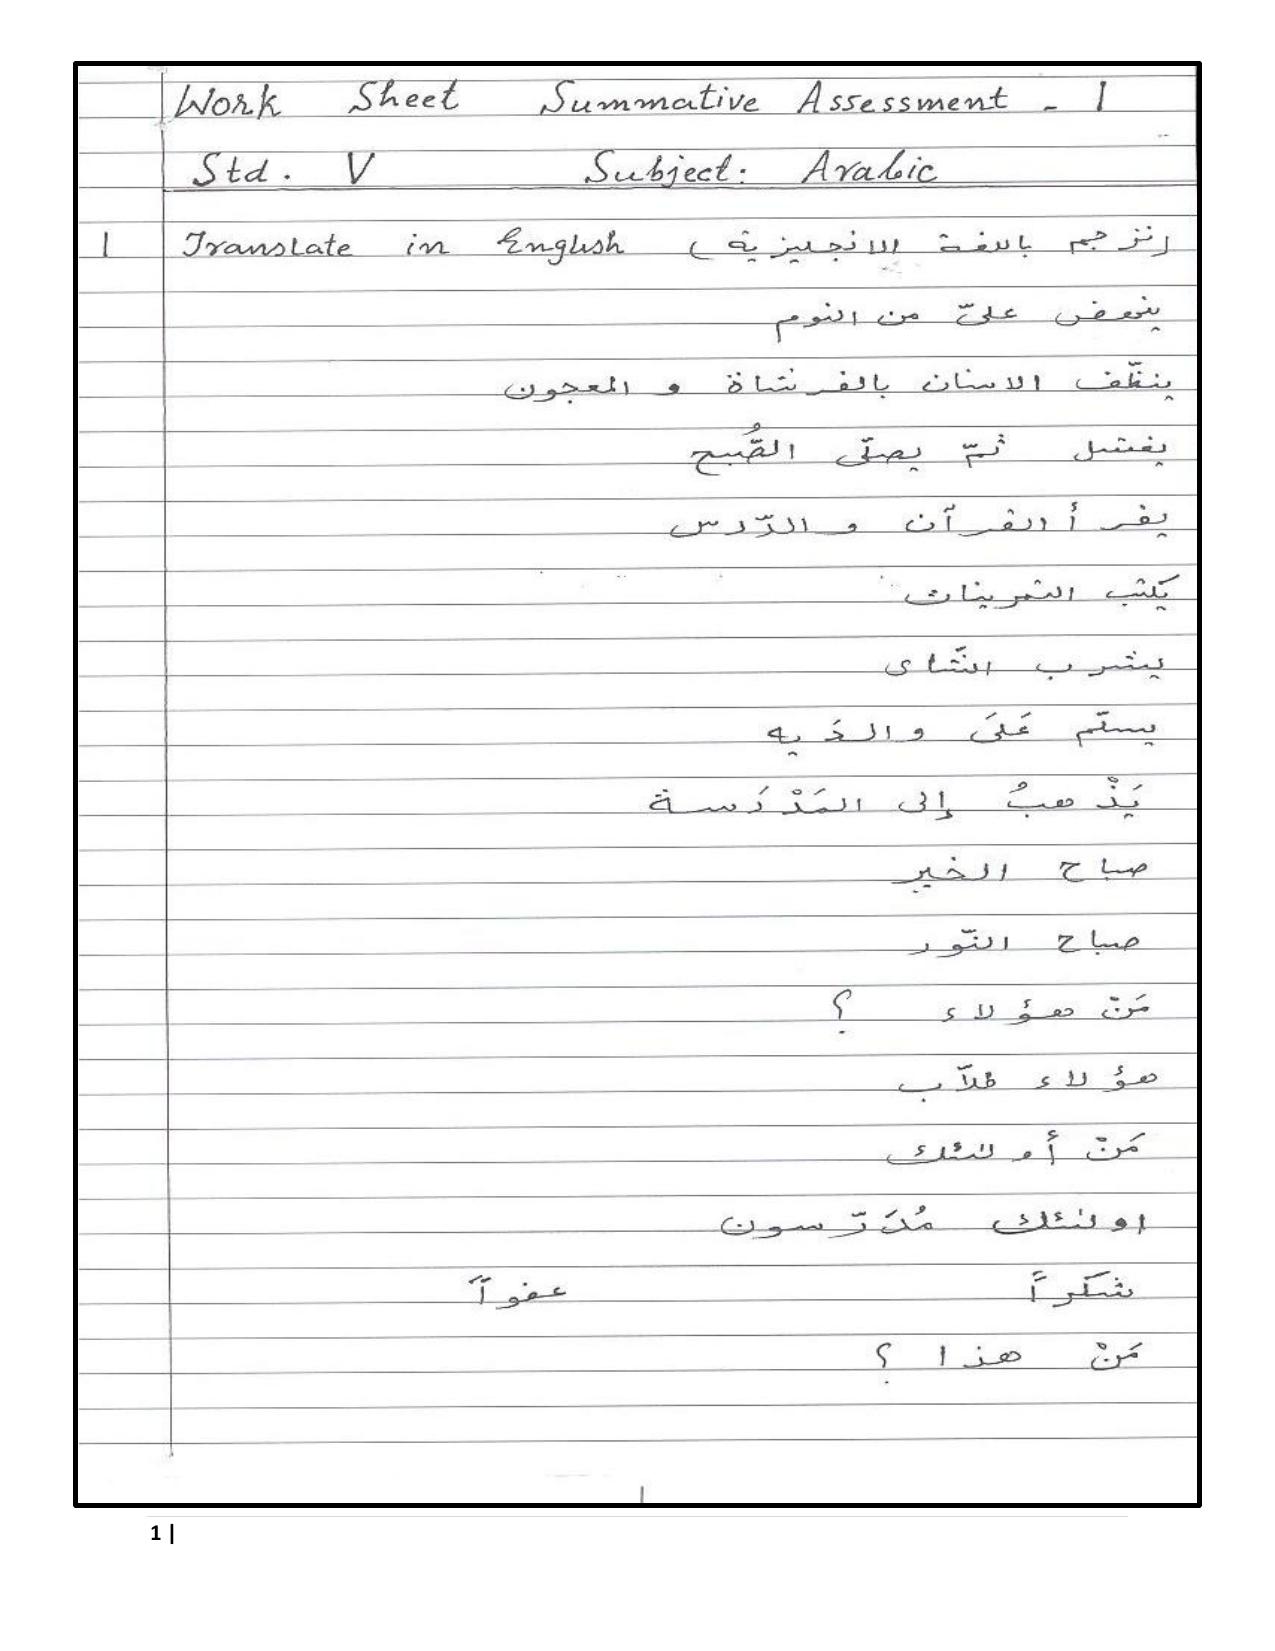 Work Sheet Summative Assessment - 1
Std. V Subject: Arabic
1 Translate in English (نترجم باللغة الانجليزية)
ينهض عليّ من النوم
ينظّف الاسنان بالفرشاة و المعجون
يغتسل ثمّ يصلّى الصُّبح
يقرأ القرآن و الدّرس
يَكتب التمرينات
يشرب الشّاى
يسلّم عَلىَ والدَيه
يَذْهبُ إلى المَدْرَسة
صباح الخير
صباح النّور
مَنْ هؤلاء ؟
هؤلاء طلاّب
مَنْ أولئك
اولئك مُدَرّسون
شكراً عفواً
مَنْ هذا ؟
1
1 |